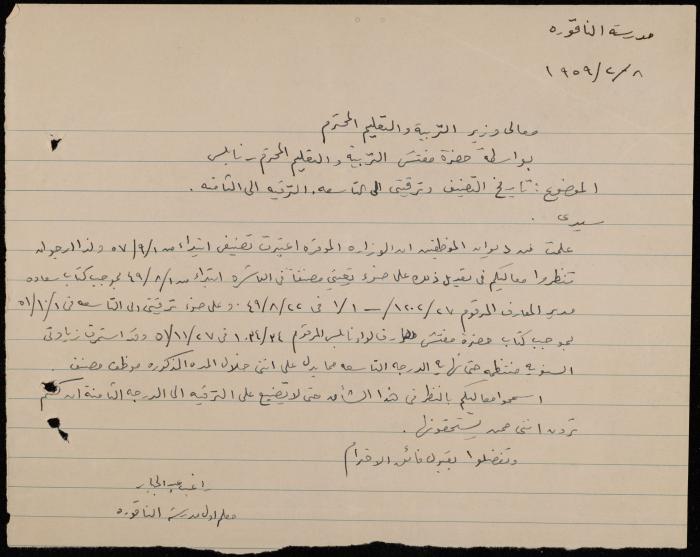 مدرسة الناقوره
١٩٥٩/٢/٨
معالي وزير التربية والتعليم المحترم
بواسطة حضرة مفتش التربية والتعليم المحترم - نابلس
الموضوع: تاريخ التصنيف وترقيتي الى التاسعه، الترقيه الى الثامنه.
سيدي.
علمت من ديوان الموظفين ان الوزاره الموقره اعتبرت تصنيفي ابتداء من ٥٧/٩/١ ولذا ارجو ان
تنظروا معاليكم في تعديل ذلك على ضوء تعييني مصنفا في العاشره ابتداء من ٤٩/٨/١ بموجب كتاب سعادة
مدير المعارف المرقوم ١٢٠٢/٢٧ ١/١ في ٤٩/٨/٢٢ وعلى ضوء ترقيتي الى التاسعه في ٥١/١/١
بموجب كتاب حضرة مفتش معارف لواء نابلس المرقوم ١٠٣٤/٣٤ في ٥١/١١/٢٧ وقد استمرت زيادتي
السنويه منتظمه حتى نهاية الدرجه التاسعه مما يدل على انني خلال المده المذكوره موظف مصنف.
اسمحوا معاليكم بالنظر في هذا الشأن حتى لا تضيع علي الترقيه الى الدرجه الثامنة ان كنتم
ترون انني ممن يستحقونها.
وتفضلوا بقبول فائق الاحترام
راغب عبد الجابر
معلم اول مدرسة الناقوره